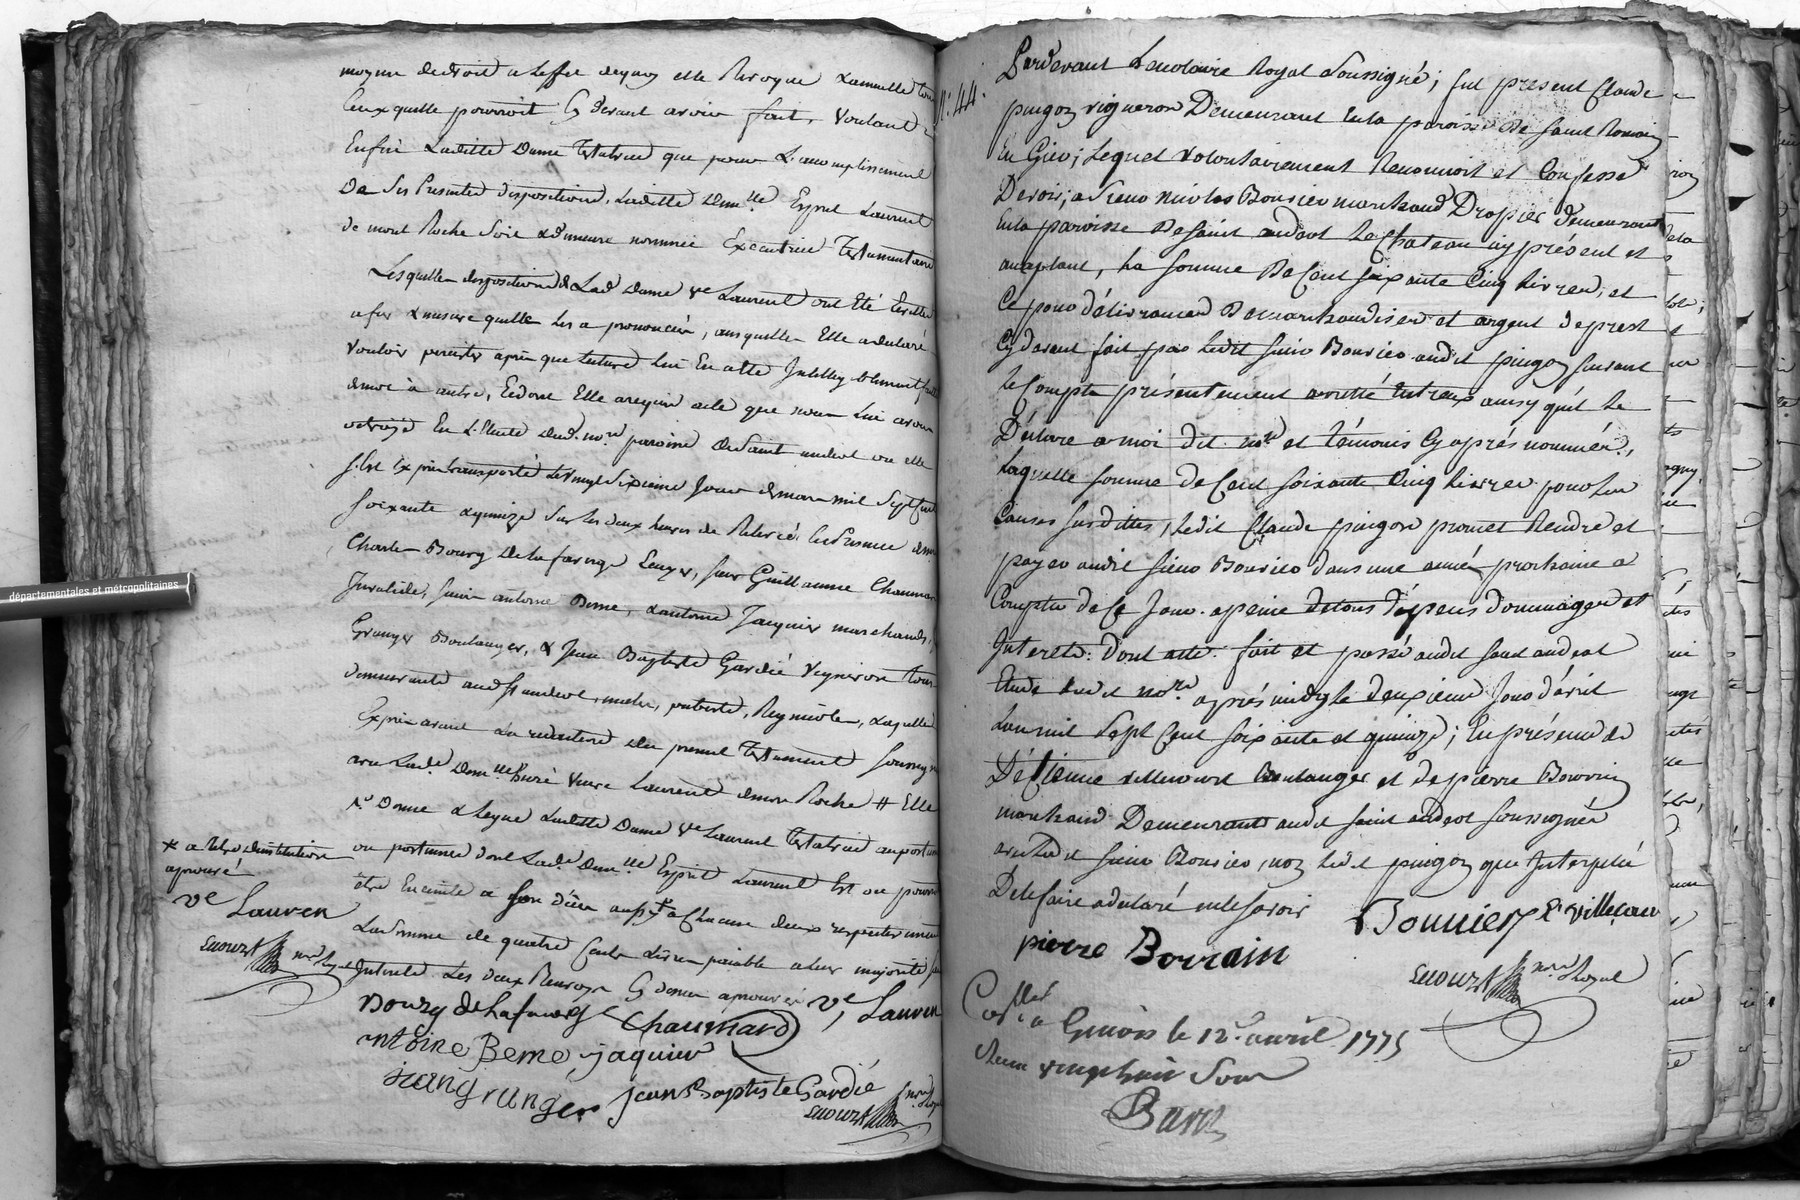 moyens de droit a leffet dequoy elle Revoque & annulle tous
Ceux quelle pourroit Cy devant avoir fait, voulant
Enfin Laditte Dame Testatrice que pour L'accomplissement
De ses Presentes dispositions, Laditte Demlle Esprit Laurent
de mont Roche soit & demeure nommée Executrice Testamentaire
Lesquelles dispositions de Lad. Dame ve Laurent ont Eté Ecrittes
a fur & mesure quelle les a prononcées, ausquelles Elle a declaré
Vouloir persister après que lecture lui En a Eté
dune à autre, Et dont Elle a requis acte que nous Lui avons
octroyé En L'Etude dud. nore paroisse de Saint andeol ou elle
s'est Exprès transportée Le vingt Sixieme Jour de mars mil Sept Cent
soixante & quinze Sur les deux heures de Relevée En Presence de
Charles Bourg Delafarge Ecuyer, sieur Guillaume Chaumard
Invalide, sieur antoine Beme, & antoine Jacquier marchands,
Granger Boulanger, & Jean Baptiste Gardié Vigneron tous
demeurants aud St andeol, Laquelle
Exprès avant La redaction du present Testament soussigné
avec Lad. Demlle veuve Laurent de mon Roche # Elle
Donne & Legue Laditte Dame ve Laurent Testatrice au posthume
ou posthumes dont Lad. Demlle Esprit Laurent Est ou pourroit
être Enceinte a son décès a Chacun deux respectivement
La Somme de quatre Cents Livres paiable a leur majorité
Interets Les deux Renvoys Cy dessus approuvés ve Lauren
* a titre d'institution
aprouvé
ve Lauren
nore Royal
Bourg de Lafarge Chaumard
ntoine Beme, jaquier
granger jean Baptiste Gardié
nore Royal
N: 44.
Pardevant Le notaire Royal soussigné; fut present Claude
pingon vigneron Demeurant En la paroisse de saint Romain
En Gier; Lequel volontairement Reconnoit et Confesse
Devoir, a sieur nicolas Bonnier marchand Drapier demeurant
En la paroisse De saint andeol Le Chateau icy présent et
acceptant, La somme De Cent soixante Cinq Livres, et
Ce pour délivrances De marchandises et argent de prest
Cy devant fait par Ledit sieur Bonnier audit pingon suivant
Le Compte présentement arretté Entreux ainsy quil Le
Déclare a moi dit nore et témoins Cy après nommés,
Laquelle somme de Cent soixante Cinq Livres pour Les
Causes susdittes, Ledit Claude pingon promet Rendre et
payer audit sieur Bonnier dans une année prochaine a
Compter de Ce Jour a peine de tous dépens dommages et
Interets: dont acte. fait et passé audit saint andeol
Etude dudit nore après midy le deuxieme Jour d'avril
Lan mil Sept Cent soixante et quinze; En présence de
D'Etienne villecourt Boulanger et de pierre Bowrin
marchand Demeurants audit saint andeol soussignés
avec Ledit sieur Bonnier, non Ledit pingon que Interpellé
De le faire a declaré ne le savoir
Bonnier E villecour
pierre Borrain
nore Royal
Conllé
a Givors le 12e avril 1775
Recu vingt huit Sous